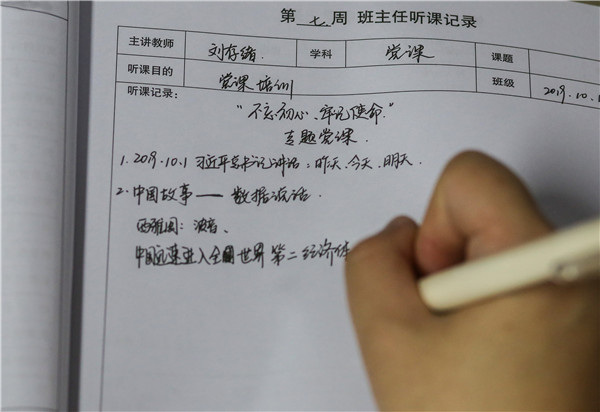 第 七 周 班主任听课记录
主讲教师 刘存绪 学科 党课 课题
听课目的 党课培训 班级 2019.10.
听课记录：
"不忘初心、牢记使命"
专题党课.
1. 2019.10.1 习近平总书记讲话：昨天、今天、明天.
2. 中国故事——数据说话.
西雅图：波音、
中国迅速进入全国世界第二经济体